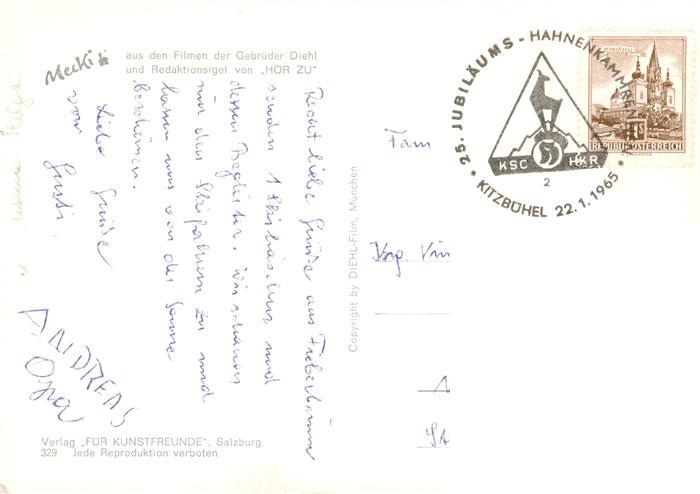 Mecki
aus den Filmen der Gebrüder Diehl
und Redaktionsigel von „HÖR ZU"
Recht liebe Grüße aus Fieberbrunn
senden 1 Skihäschen und
dessen Begleiter. Wir schauen
nur den Skifahrern zu und
lassen uns von der Sonne
bescheinen.
Liebe Grüße
von Gusti
Helga
ANDREAS
Opa
Verlag „FÜR KUNSTFREUNDE", Salzburg
329 Jede Reproduktion verboten
Copyright by DIEHL-Film, München
Fam
25. JUBILÄUMS-HAHNENKAMMREN
KSC HKR
2
* KITZBÜHEL 22.1.1965 *
1S
REPUBLIK ÖSTERREICH